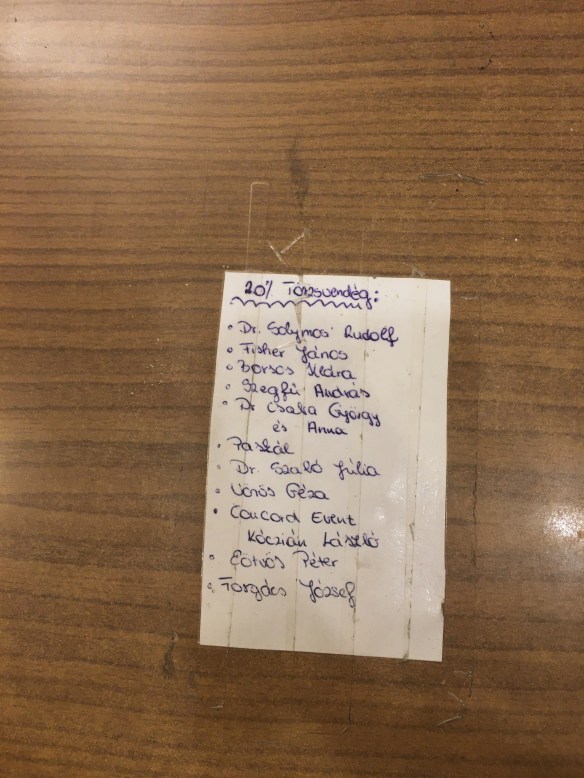 20% Törzsvendég:
• Dr. Solymosi Rudolf
• Fisher János
• Borsos Klára
• Szegfű András
• Dr Csaba György
és Anna
• Paskál
• Dr. Szabó Júlia
• Vörös Géza
• Concord Event
Kóczián László
• Eötvös Péter
• Forgács József